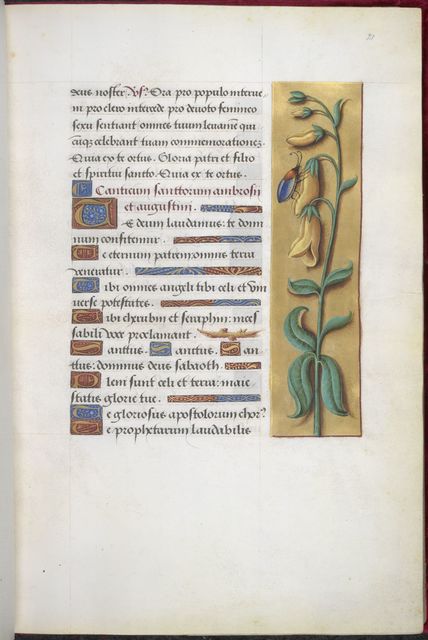 21
deus noster. Vs. Ora pro populo interve
ni pro clero intercede pro devoto femineo
sexu sentiant omnes tuum levamen qui
cunque celebrant tuam commemorationem.
Quia ex te ortus. Gloria patri et filio
et spiritui sancto. Quia ex te ortus.
Canticum sanctorum ambrosii
et augustini.
Te deum laudamus: te domi
num confitemur.
Te eternum patrem: omnis terra
veneratur.
Tibi omnes angeli tibi celi et vni
verse potestates.
Tibi cherubin et seraphin: inces
sabili voce proclamant.
Sanctus. Sanctus. San
ctus: dominus deus sabaoth.
Pleni sunt celi et terra: maie
statis glorie tue.
Te gloriosus apostolorum chorus
Te prophetarum laudabilis